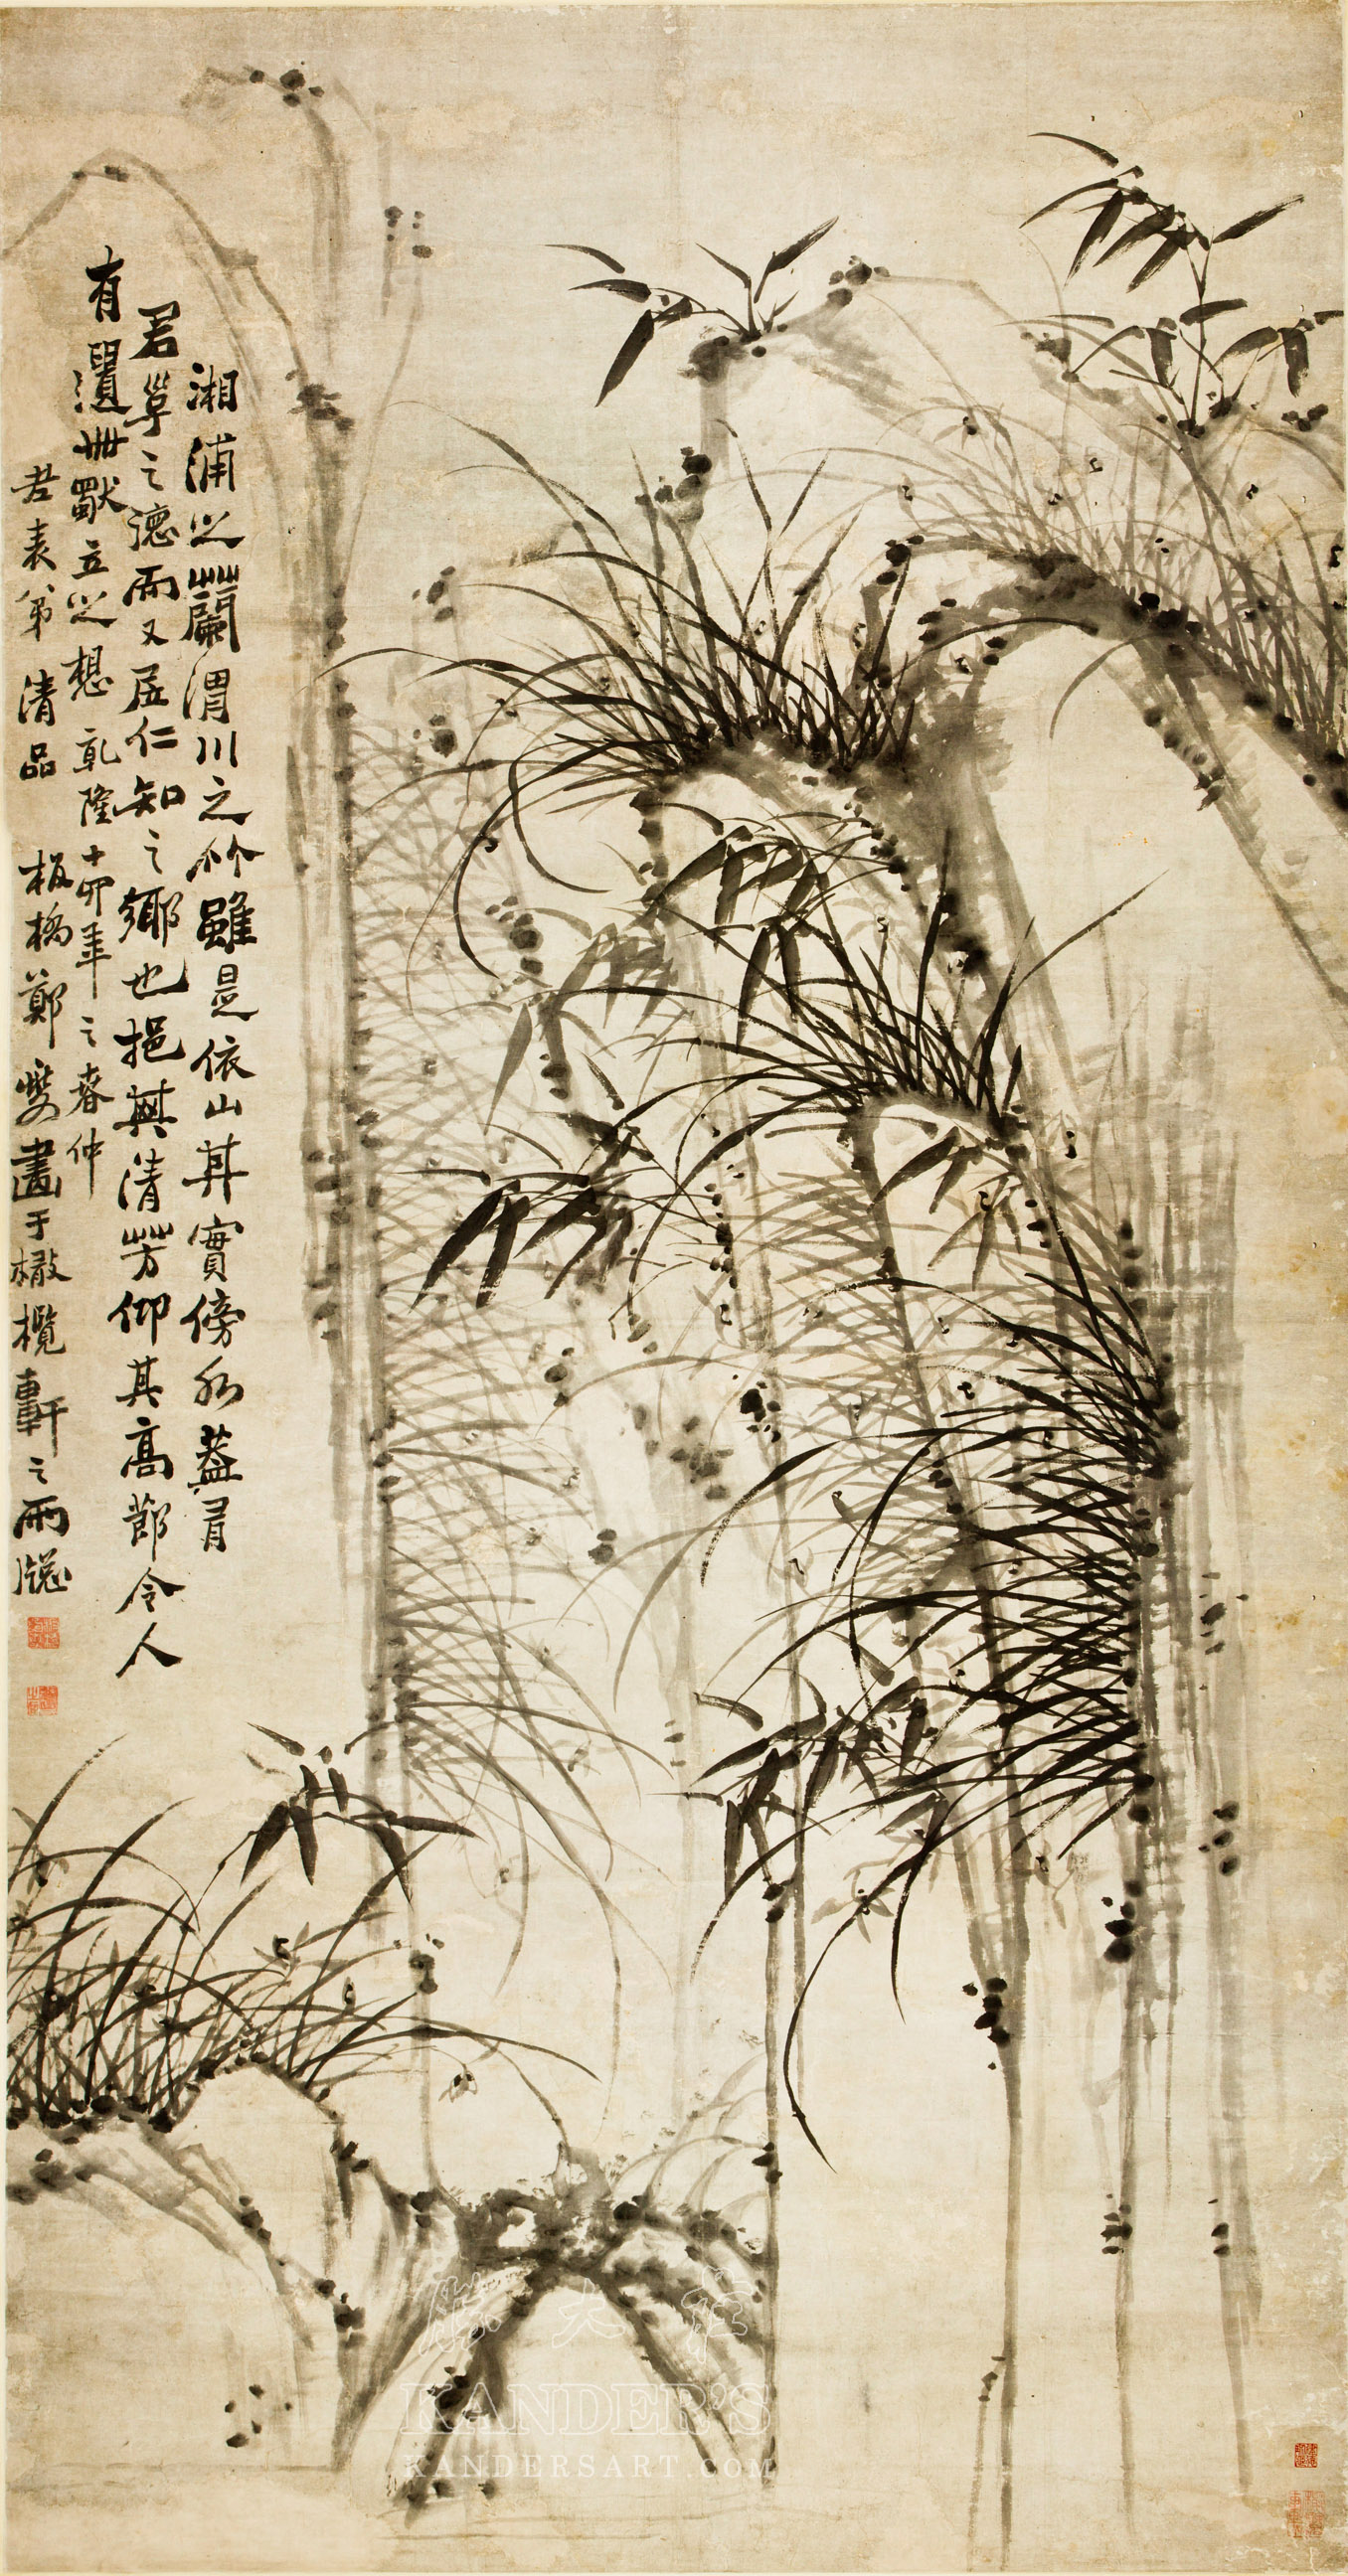 湘浦之蘭渭川之竹雖是依山其實傍水蓋有
君子之德而又居仁知之鄉也挹其清芳仰其高節令人
有遺世獨立之想 乾隆丁卯年之春仲
君表八弟清品 板橋鄭燮畫于橄欖軒之雨窓
勝大莊
KANDER'S
KANDERSART.COM